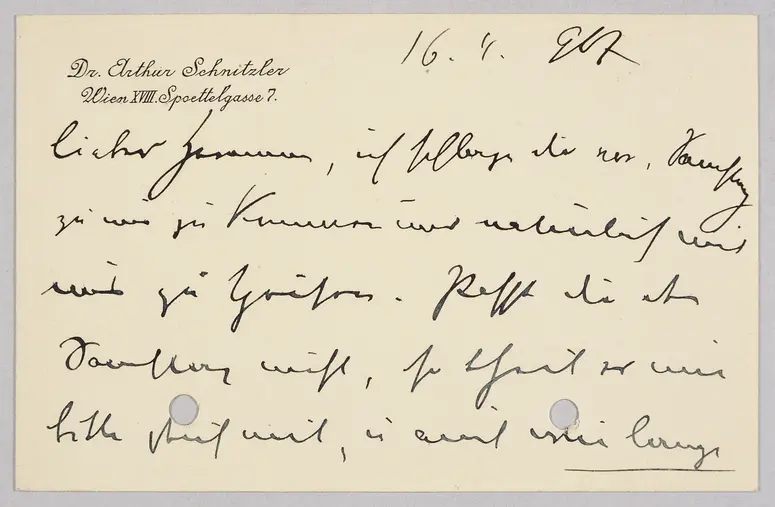 Dr. Arthur Schnitzler
Wien XVIII. Spoettelgasse 7.
16. 4. 907
lieber Hermann, ich schlage dir vor, Samstag
zu mir zu kommen und natürlich mit
mir zu . Passt dir aber
Samstag nicht, so theil es mir
bitte mit, u auch wie lange